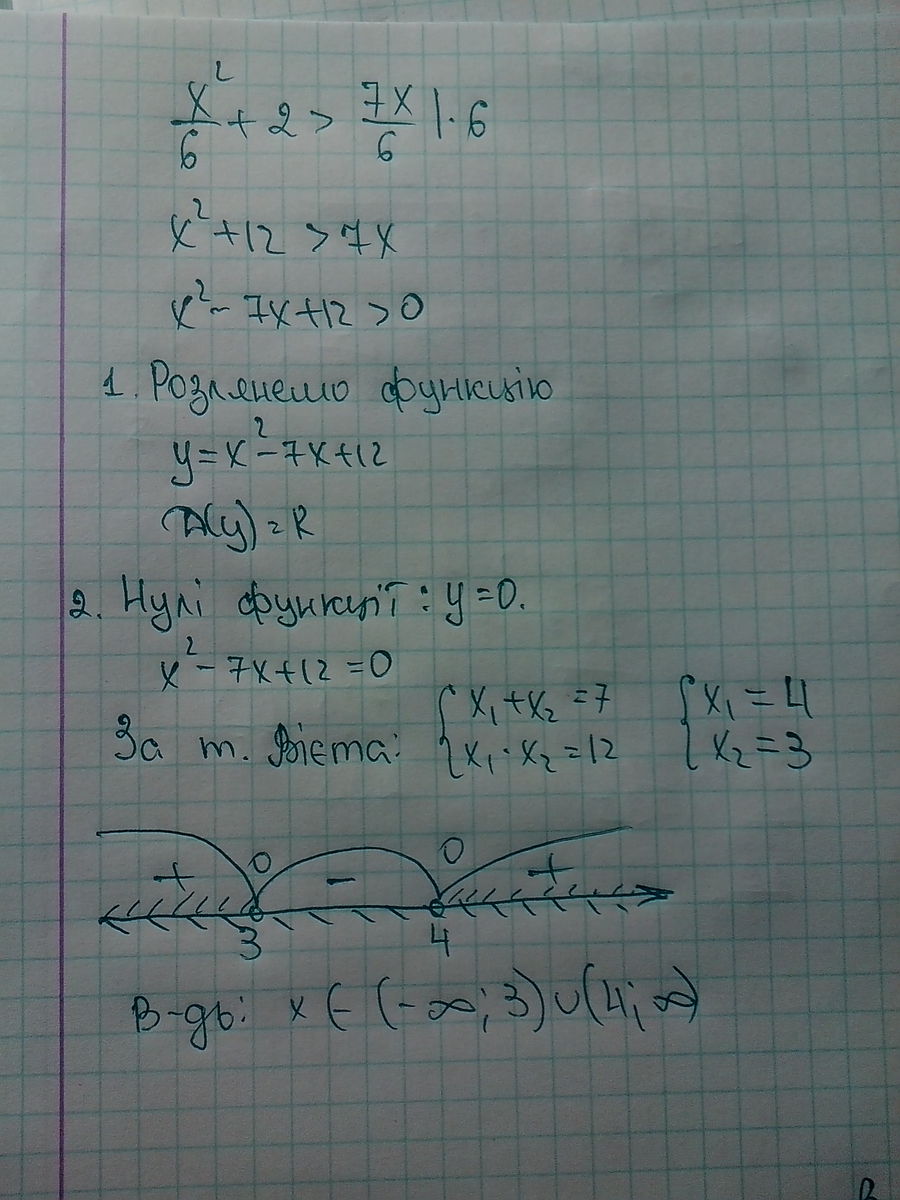 x²/6 + 2 > 7x/6 | · 6
x² + 12 > 7x
x² - 7x + 12 > 0
1. Розлянемо функцію
y = x² - 7x + 12
D(y) = R
2. Нулі функції: y = 0.
x² - 7x + 12 = 0
За т. Вієта: { x₁ + x₂ = 7 { x₁ = 4
x₁ · x₂ = 12 x₂ = 3
+ 0 - 0 +
3 4
В-дь: x ∈ (-∞; 3) ∪ (4; ∞)